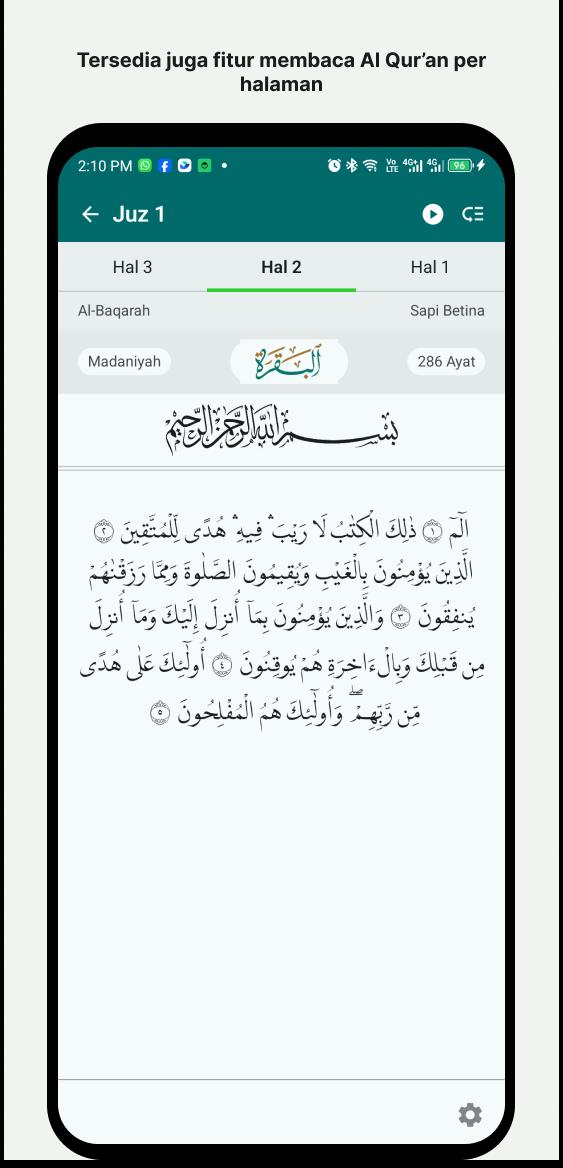 Tersedia juga fitur membaca Al Qur’an per
halaman
2:10 PM
Vo LTE 4G+ 4G 96
Juz 1
Hal 3 Hal 2 Hal 1
Al-Baqarah Sapi Betina
Madaniyah البقرة 286 Ayat
بسم الله الرحمن الرحيم
الٓمٓ ۝١ ذَٰلِكَ الْكِتَٰبُ لَا رَيْبَ ۛ فِيهِ ۛ هُدًى لِّلْمُتَّقِينَ ۝٢
الَّذِينَ يُؤْمِنُونَ بِالْغَيْبِ وَيُقِيمُونَ الصَّلَوٰةَ وَمِمَّا رَزَقْنَٰهُمْ
يُنفِقُونَ ۝٣ وَالَّذِينَ يُؤْمِنُونَ بِمَآ أُنزِلَ إِلَيْكَ وَمَآ أُنزِلَ
مِن قَبْلِكَ وَبِالْءَاخِرَةِ هُمْ يُوقِنُونَ ۝٤ أُولَٰٓئِكَ عَلَىٰ هُدًى
مِّن رَّبِّهِمْ ۖ وَأُولَٰٓئِكَ هُمُ الْمُفْلِحُونَ ۝٥